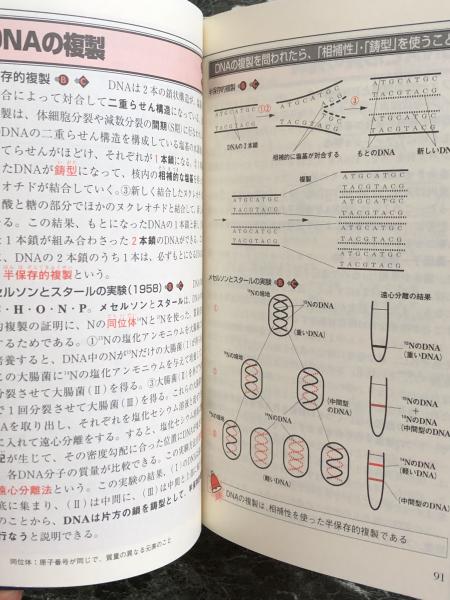 DNAの複製
存的複製 B C DNAは2本の鎖状構造が、
合によって対合して二重らせん構造になっている。
製は、体細胞分裂や減数分裂の間期(S期)に行われ
DNAの二重らせん構造を構成している塩基の
てらせんがほどけ、それぞれが1本鎖になる。
たDNAが鋳型になって、核内の相補的な塩基を
オチドが結合していく。③新しく結合したヌクレオ
酸と糖の部分でほかのヌクレオチドと結合して、新
る。この結果、もとになったDNAの1本鎖と新し
1本鎖が組み合わさった2本鎖のDNAができる。
に、DNAの2本鎖のうち1本は、必ずもとになる
半保存的複製という。
セルソンとスタールの実験(1958) B C DNA
C・H・O・N・P。メセルソンとスタールは、DNA
的複製の証明に、Nの同位体¹⁴Nと¹⁵Nを使った。
するためである。①¹⁵Nの塩化アンモニウムを
培養すると、DNA中のNが¹⁵Nだけの大腸菌(Ⅰ)が
この大腸菌に¹⁴Nの塩化アンモニウムを与えて
分裂させて大腸菌(Ⅱ)を得る。③大腸菌(Ⅱ)を
で1回分裂させて大腸菌(Ⅲ)を得る。これらの
Aを取り出し、それぞれを塩化セシウム溶液と
に入れて遠心分離をする。すると、塩化セシウム
配が生じて、その密度勾配に合った位置にDNAが
各DNA分子の質量が比較できる。この実験方法
遠心分離法という。この実験の結果、(Ⅰ)のDNA
底に集まり、(Ⅱ)は中間に、(Ⅲ)は中間と上
のことから、DNAは片方の鎖を鋳型として、
行なうと説明できる。
同位体:原子番号が同じで、質量の異なる元素のこと
DNAの複製を問われたら、「相補性」・「鋳型」を使うこと
半保存的複製 B C
ATGCATGC
TACGTACG
DNAの1本鎖
①②
ATGCATGC
TACGTACG
相補的に塩基が対合する
③
ATGCATGC
TACGTACG
ATGCATGC
TACGTACG
もとのDNA
新しいDNA
複製
ATGCATGC
TACGTACG
ATGCATGC
TACGTACG
ATGCATGC
TACGTACG
ATGCATGC
TACGTACG
ATGCATGC
TACGTACG
ATGCATGC
TACGTACG
メセルソンとスタールの実験 B C
¹⁵Nの培地
遠心分離の結果
①
¹⁵NのDNA
(重いDNA)
¹⁵NのDNA
(重いDNA)
¹⁴Nの培地
②
¹⁴NのDNA
(中間型のDNA)
¹⁵NのDNA
+
¹⁴NのDNA
(中間型のDNA)
¹⁴Nの培地
③
¹⁴NのDNA
(軽いDNA)
¹⁴NのDNA
(軽いDNA)
(中間型のDNA)
DNAの複製は、相補性を使った半保存的複製である
91